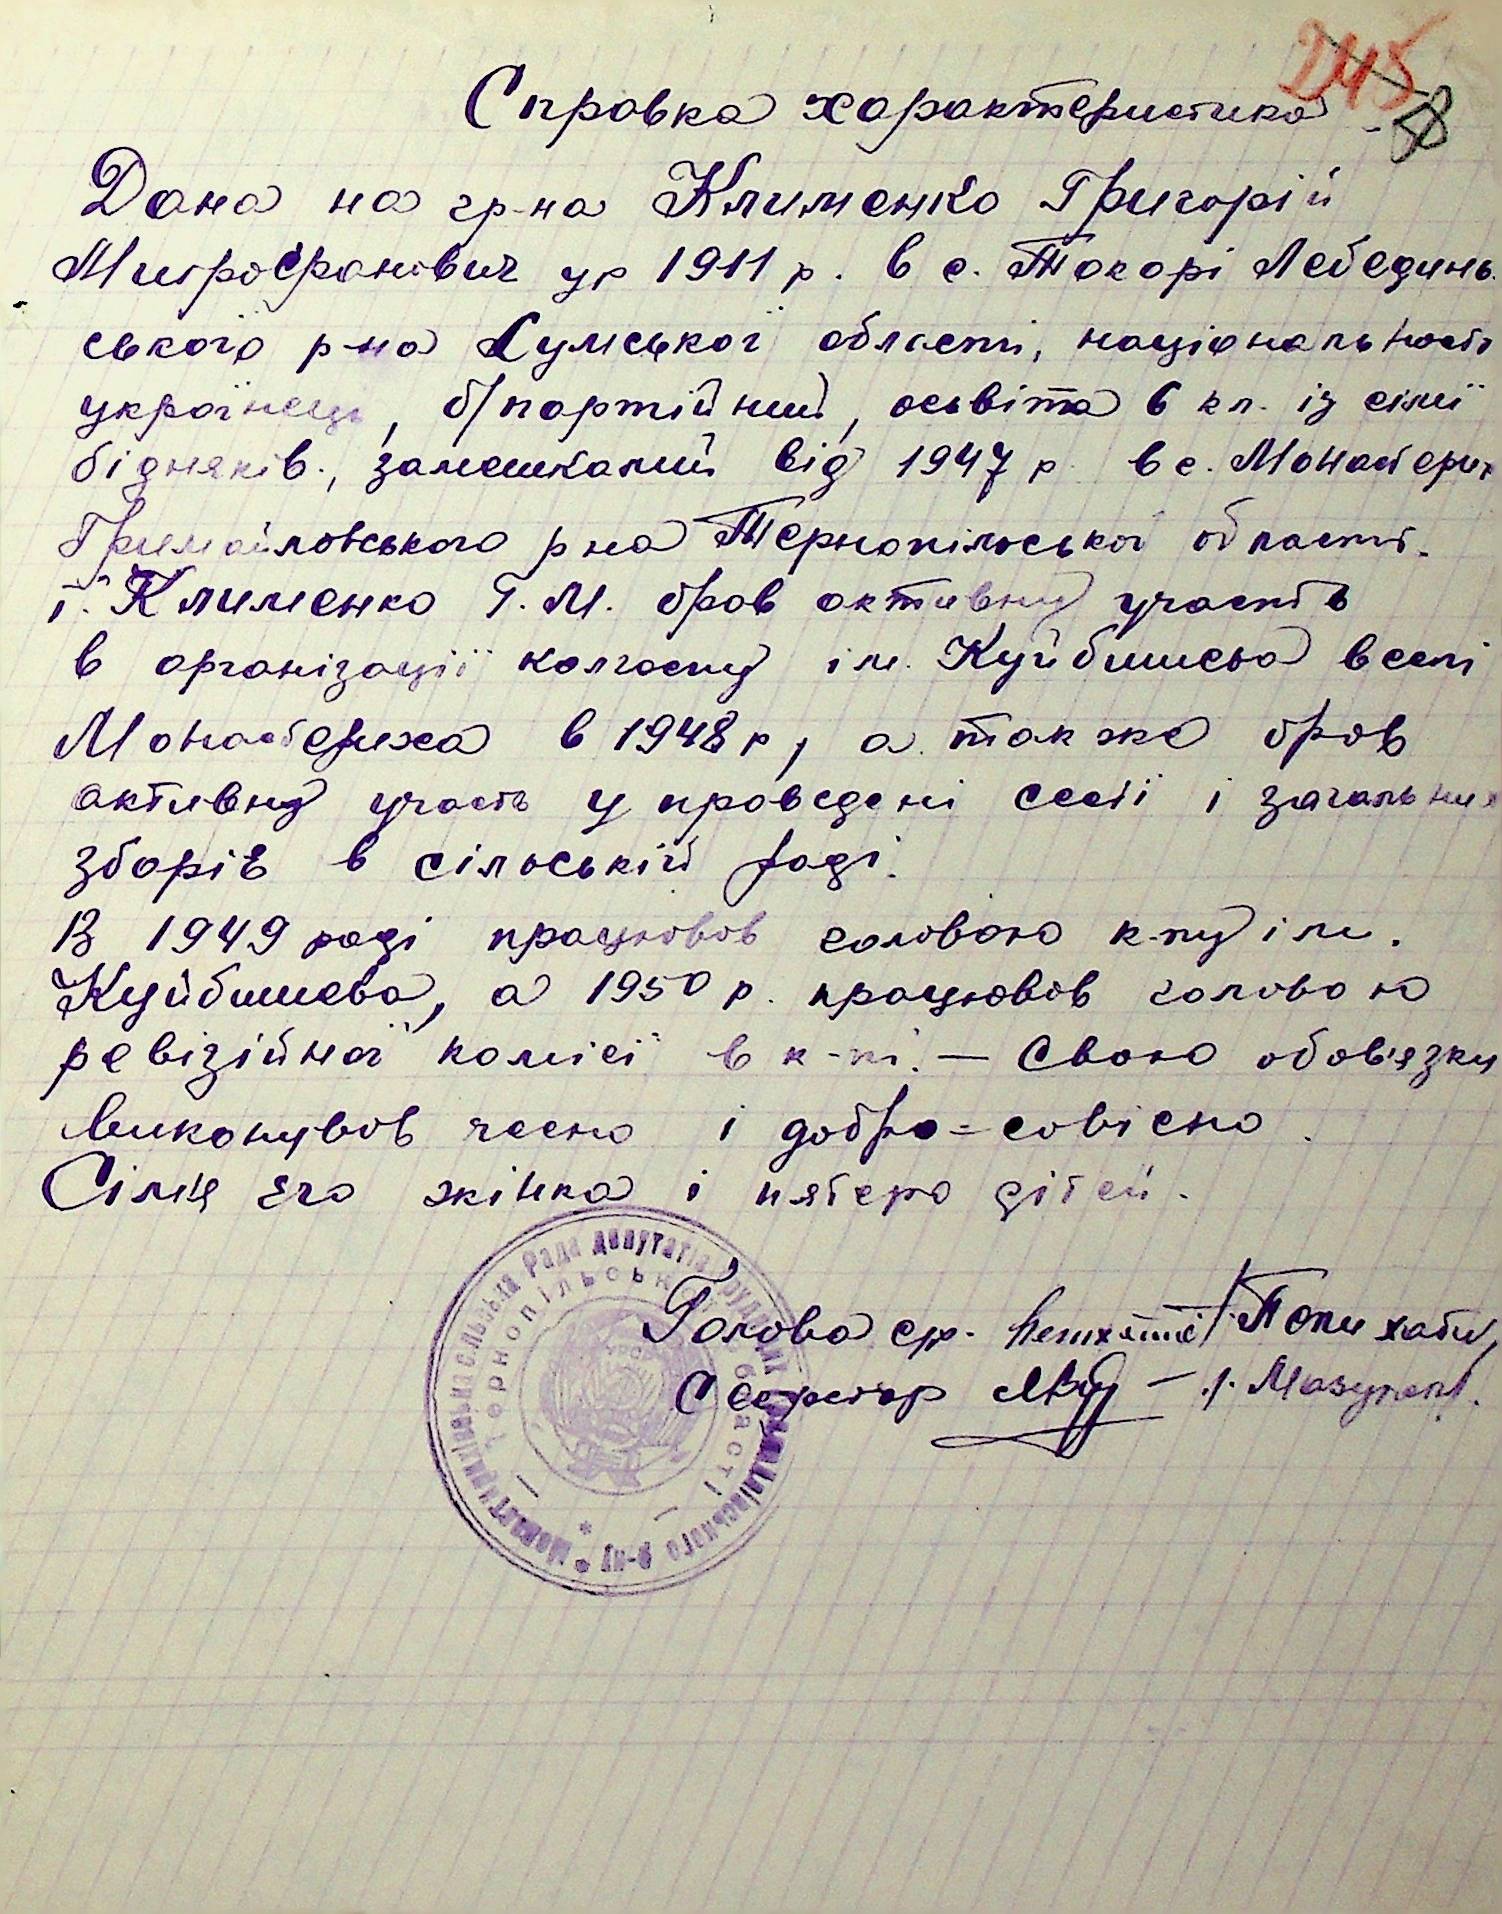 245
8
Справка характеристика
Дана на гр-на Клименко Григорій
Митрофанович ур 1911 р. в с. Токорі Лебединь-
ського р-на Сумської області, національность
українець, б/партійний, освіта 6 кл. із сімї
бідняків., замешкалий від 1947 р. в с. Монастерих
Гримайловського р на Тернопільської области.
г. Клименко Г. М. брав активну участь
в організації колгоспу ім. Куйбишева в селі
Монастериха в 1948 р, а также брав
активну участь у проведені сесії і загальних
зборів в сільській раді.
В 1949 році працював головою к-пу ім.
Куйбишева, а 1950 р. працював головою
ревізійної комісії в к-пі. — свою обов'язки
виконував чесно і добро=совісно.
Сімя его жінка і пятеро дітей.
Голова ср.
Секретар
Рада депутатів трудящих
Тернопільської області
р-ну